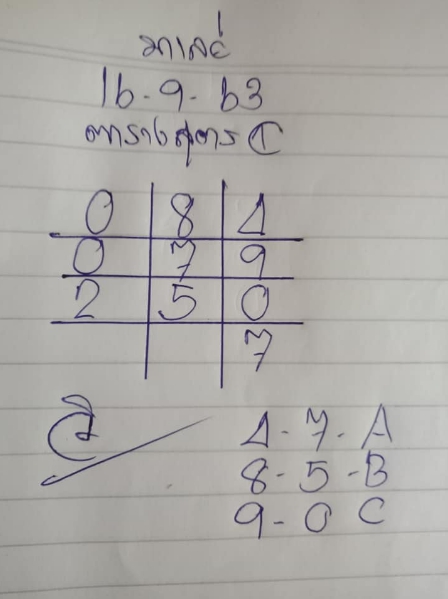 มาเลย์
16-9-63
ตารางสูตร C
0 8 1
0 7 9
2 5 0
7
1-7-A
8-5-B
9-0 C